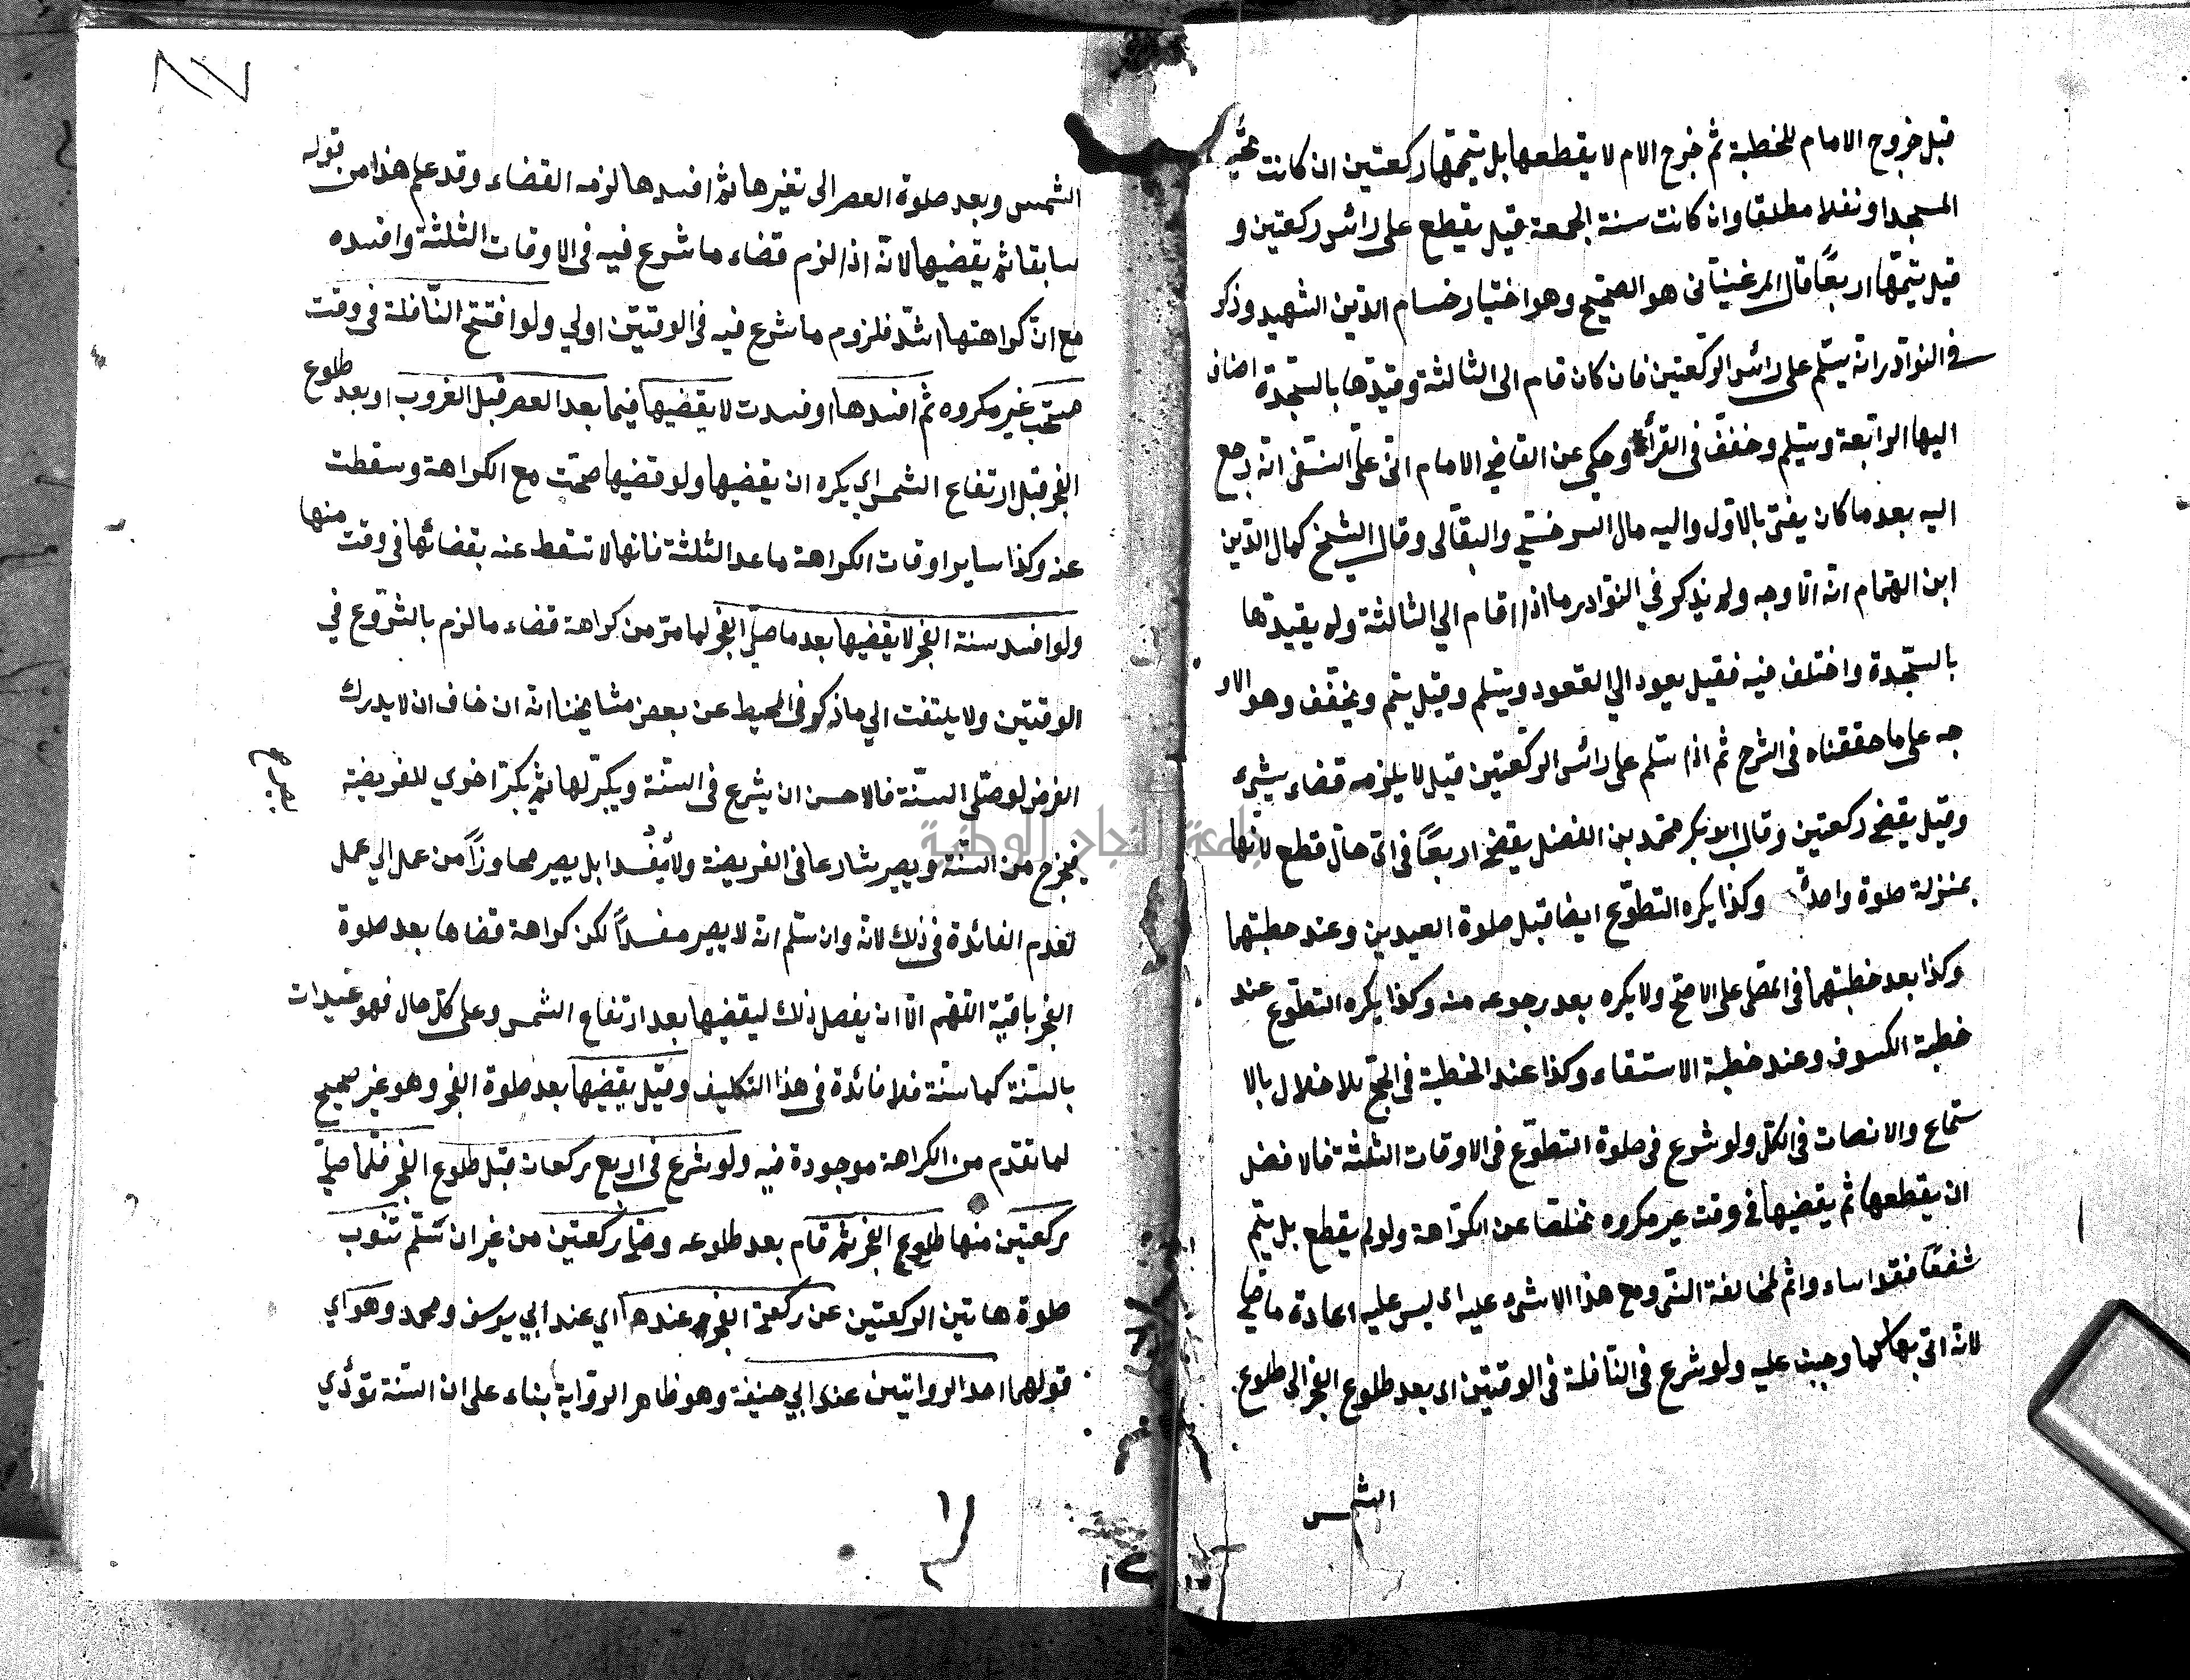 قبل خروج الامام للخطبة ثم خرج الامام لا يقطعها بل يتمها ركعتين ان كانت تحية
المسجد او نفلا مطلقا وان كانت سنة الجمعة قيل يقطع على رائس ركعتين و
قيل يتمها اربعًا قال المرغيناني هو الصحيح وهو اختيار حسام الدين الشهيد وذكر
في النوادر انه يسلم على رائس الركعتين فان كان قام الى الثالثة وقيدها بالسجدة اضاف
اليها الرابعة ويسلم وخفف في القرأة وحكى عن القاضي الامام ابي على النسفى انه رجع
اليه بعد ما كان يفتى بالاول واليه مال السرخسي والبقالى وقال الشيخ كمال الدين
ابن الهمام انه الاوجه ولم يذكر في النوادر ما اذا قام الي الثالثة ولم يقيدها
بالسجدة واختلف فيه فقيل يعود الي القعود ويسلم وقيل يتم ويخفف وهو الاو
جه على ما حققناه فى الشرح ثم اذا سلم على رائس الركعتين قيل لا يلزمه قضاء شيء
وقيل يقضى ركعتين وقال ابو بكر محمد بن الفضل يقضى اربعًا فى اى حال قطع لانها
بمنزلة صلوة واحدة وكذا يكره التطوع ايضا قبل صلوة العيدين وعند خطبتهما
وكذا بعد خطبتهما فى المصلى على الاصح ولا يكره بعد رجوعه منه وكذا يكره التطوع عند
خطبة الكسوف وعند خطبة الاستسقاء وكذا عند الخطبة فى الحج للاخلال بالا
ستماع والانصات فى الكل ولو شرع فى صلوة التطوع فى الاوقات الثلثة فالافضل
ان يقطعها ثم يقضيها في وقت غير مكروه تخلصا عن الكراهة ولو لم يقطع بل يتم
شفعًا فقد اساء واثم لمخالفة النهى ومع هذا لا شيء عليه اى ليس عليه اعادة ما صلى
لانه اتى بها كما وجبت عليه ولو شرع فى النافلة فى الوقتين اى بعد طلوع الفجر الى طلوع
الشمس
٨٧
الشمس وبعد صلوة العصر الى تغيرها ثم افسدها لزمه القضاء وقد علم هذا من قوله
سابقا ثم يقضيها لانه اذا لزم قضاء ما شرع فيه فى الاوقات الثلثة وافسده
مع ان كراهتها اشد فلزوم ما شرع فيه فى الوقتين اولي ولو افتتح النافلة فى وقت
مستحب غير مكروه ثم افسدها او فسدت لا يقضيها فيما بعد العصر قبل الغروب او بعد طلوع
الفجر قبل ارتفاع الشمس اي يكره ان يقضيها ولو قضيها صحت مع الكراهة وسقطت
عنه وكذا ساير اوقات الكراهة ما عدا الثلثة فانها لا تسقط عنه بقضائها فى وقت منها
ولو افسد سنة الفجر لا يقضيها بعد ما صلى الفجر لما مر من كراهة قضاء ما لزم بالشروع في
الوقتين ولا يلتفت الي ما ذكر فى المحيط عن بعض مشايخنا انه ان خاف ان لا يدرك
الفرض لو صلى السنة فالاحسن ان يشرع فى السنة ويكبر لها ثم يكبر اخري للفريضة
فيخرج من السنة ويصير شارعا فى الفريضة ولا يفسد بل يصير مجاوزاً من عمل الي عمل
لعدم الفائدة فى ذلك لانه وان سلم انه لا يصير مفسداً لكن كراهة قضاها بعد صلوة
الفجر باقية اللهم الا ان يفصل ذلك ليقضيها بعد ارتفاع الشمس وعلى كل حال فهو
بالسنة كما سنة فلا فائدة فى هذا التكليف وقيل يقضيها بعد صلوة الفجر وهو غير صحيح
لما تقدم من الكراهة موجودة فيه ولو شرع فى اربع ركعات قبل طلوع الفجر فلما صلي
ركعتين منها طلوع الفجر ثم قام بعد طلوعه وصلى ركعتين من غير ان تسلم تنوب
صلوة هاتين الركعتين عن ركعتى الفجر عندهما اي عند ابي يوسف ومحمد وهو اي
قولهما احد الروايتين عند ابي حنيفة وهو ظاهر الرواية بناء على ان السنة تؤدي
جامعة النجاح الوطنية